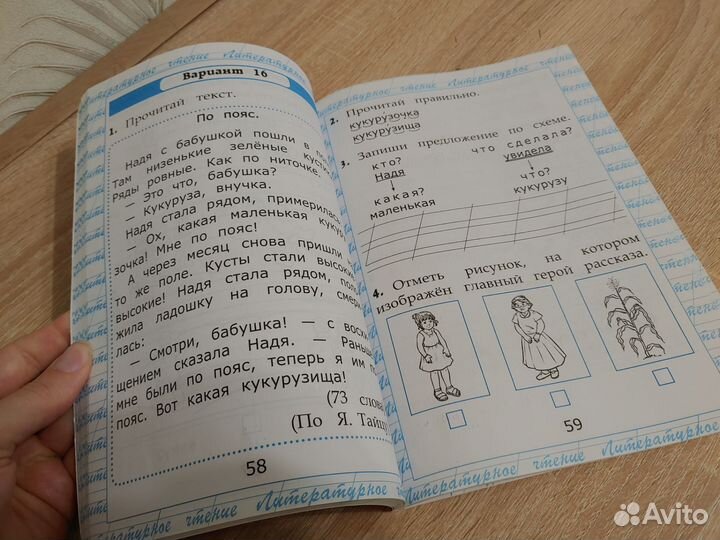 Литературное чтение Литературное
Вариант 16
1. Прочитай текст.
По пояс.
Надя с бабушкой пошли в
Там низенькие зелёные
Ряды ровные. Как по ниточке.
— Это что, бабушка?
— Кукуруза, внучка.
Надя стала рядом, примерилась
— Ох, какая маленькая
зочка! Мне по пояс!
А через месяц снова пришли
то же поле. Кусты стали
высокие! Надя стала рядом,
жила ладошку на голову,
лась:
— Смотри, бабушка! — с
щением сказала Надя. —
мне были по пояс, теперь я им
пояс. Вот какая кукурузища!
(73 слова
(По Я.
58
чтение Литературное
Литературное чтение Литературное
2. Прочитай правильно.
кукурузочка
кукурузища
3. Запиши предложение по схеме.
кто? что сделала?
Надя увидела
какая? что?
маленькая кукурузу
4. Отметь рисунок, на котором
изображён главный герой рассказа.
59
Литературное чтение Литературное
Avito